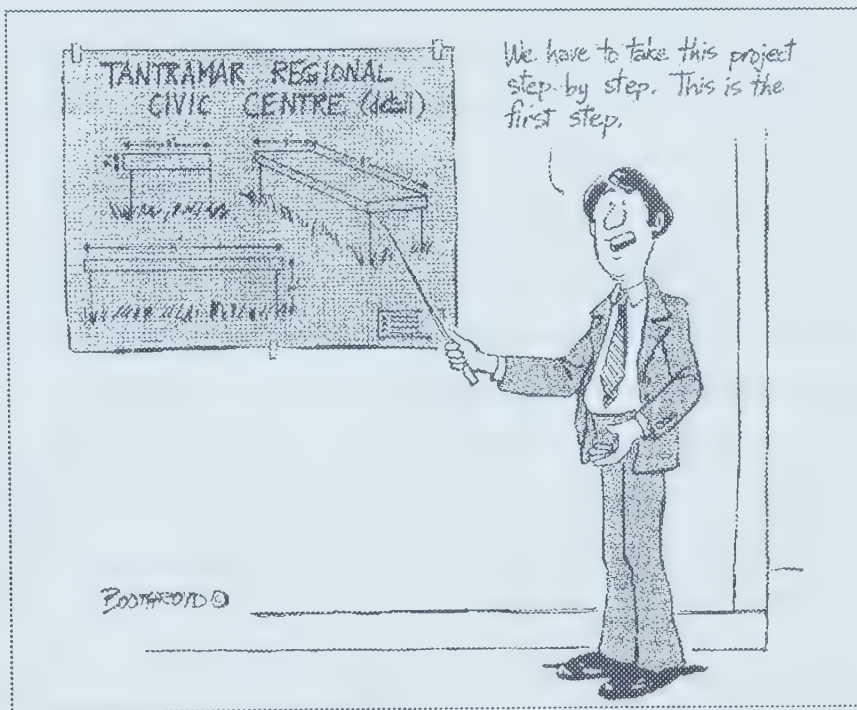 TANTRAMAR REGIONAL
CIVIC CENTRE (detail)
We have to take this project
step by step. This is the
first step.
BOOTHROYD ©